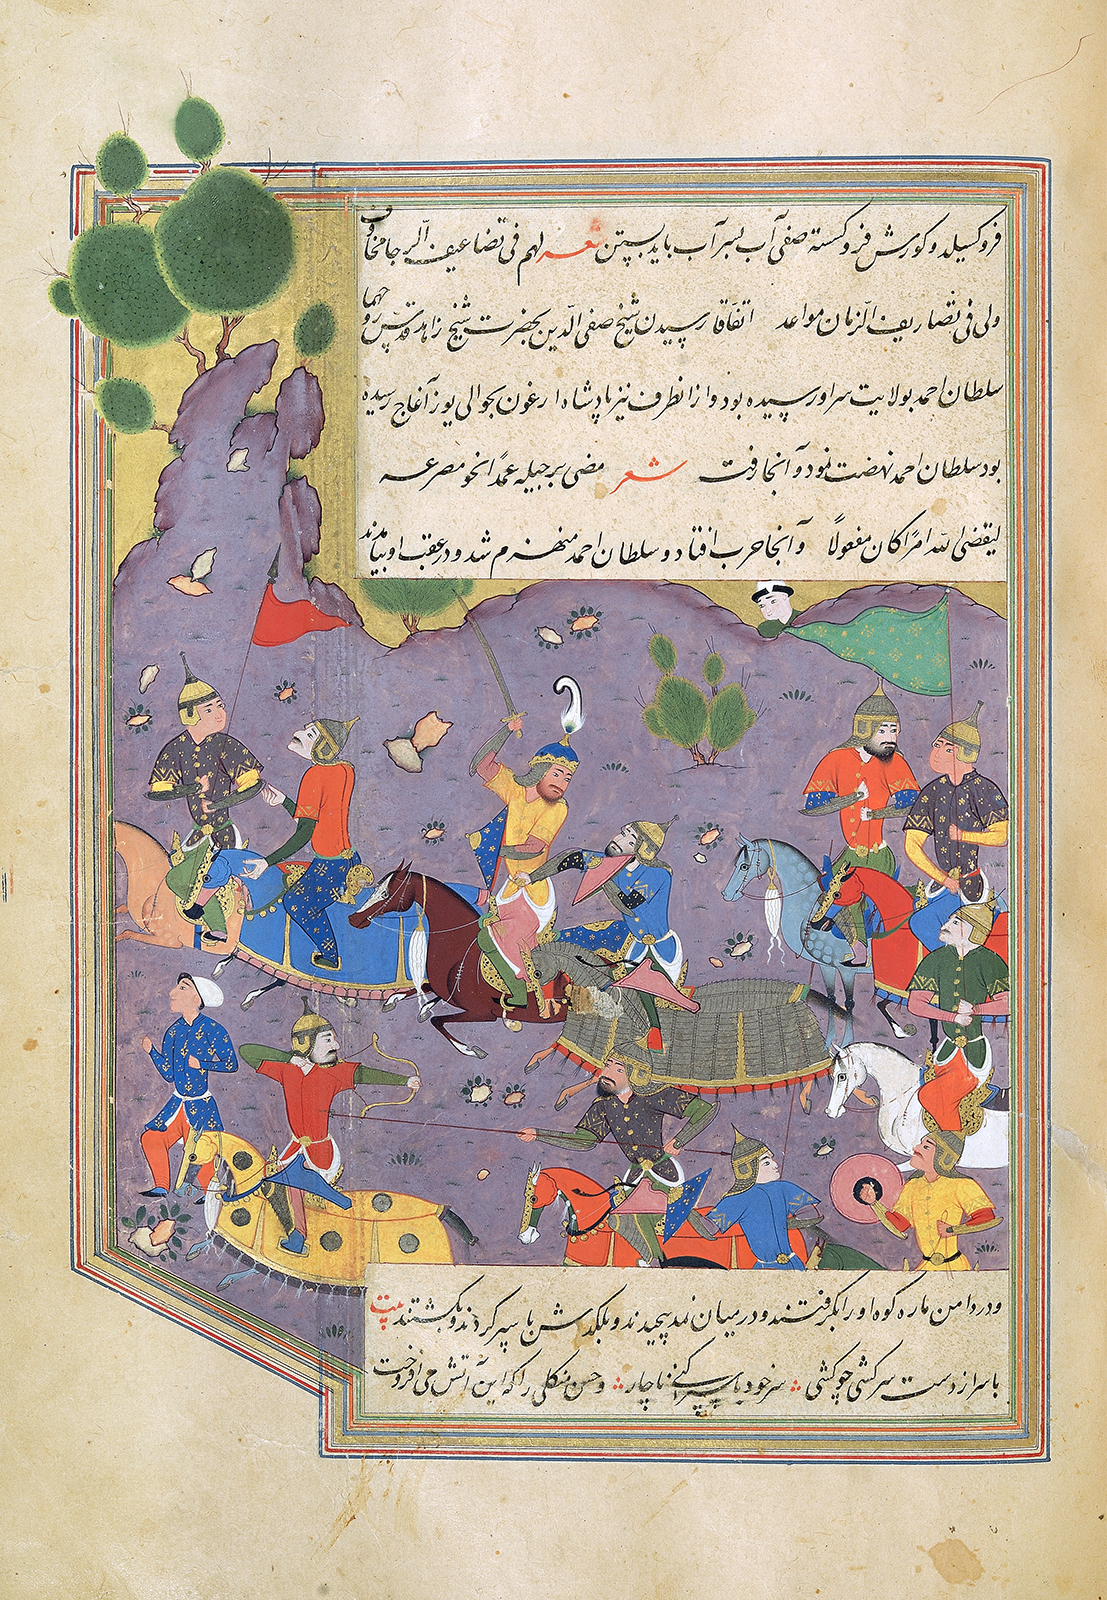 فروکسیلد و کورش فروکسته صفی آب بسر آب باید بستن شعر لهم فی تضاعیف الرجا مخاوف
ولی فی تصاریف الزمان مواعد اتفاقا رسیدن شیخ صفی الدین بحضرت شیخ زاهد قدس روحهما
سلطان احمد بولایت سراو رسیده بود و از انطرف نیز پادشاه ارغون بحوالی یوز آغاج رسیده
بود سلطان احمد نهضت نمود و آنجا رفت شعر مضی بر جبله عمدا نحو مصرعه
لیقضی الله امرًا کان مفعولاً و آنجا حرب افتاد و سلطان احمد منهزم شد و در عقب او بیامدند
و در دامن ماره کوه او را بگرفتند و در میان نمد پیچیدند و بلکد سرش با سپر کردند و بکشتند بیت
با سر از دست سرکشی چو کشی سر خود باسپر کنی ناچار و حسن منکلی را که این آتش می افروخت